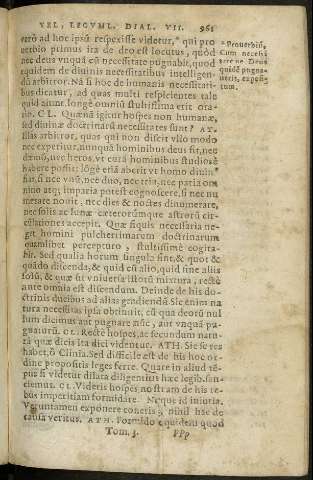 VEL, LEGVML. DIAL. VII. 961
erò ad hoc ipsũ respexisse videtur, qui pro
uerbio primus ita de deo est locutus, quòd
nec deus vnquā cū necessitate pugnabit, quod
equidem de diuinis necessitatibus intelligen-
dū arbitror. Nā si hoc de humanis necessitati-
bus dicatur, ad quas multi respicientes tale
quid aiunt, longè omniū stultissima erit ora-
tio. CL. Quænā igitur hospes non humanæ,
sed diuinæ doctrinarū necessitates sunt? AT.
Illas arbitror, quas qui non discit vllo modo
nec expetitur, nunquā hominibus deus fit, nec
dæmō, nec heros, vt curā hominibus studiosè
habere possit: longè etiā aberit vt homo diuin
nas, si nec vnū, nec duo, nec tria, nec paria om
nino atq; imparia potest cognoscere, si nec nu
merare nouit, nec dies & noctes dinumerare,
nec solis ac lunæ cæterorūmque astrorū cir-
culationes accepit. Quæ siquis necessaria ne-
get homini pulcherrimarum doctrinarum
quamlibet percepturo, stultissimè cogita-
bit. Sed qualia horum singula sint, & quot &
quādo discenda, & quid cū alio, quid sine aliis
solū, & quæ sit vniuersa istorū mixtura, rectè
ante omnia est discendum. Deinde de his do-
ctrinis ducibus ad alias gradiendū. Sic enim na
tura necessitas ipsa obtinuit, cū qua deorū nul
lum dicimus aut pugnare nūc, aut vnquā pu-
gnaturū. CL. Rectè hospes, ac secundum natu-
rā quæ dicis ita dici videntur. ATH. Sic se res
habet, ô Clinia. Sed difficile est de his hoc or-
dine propositis leges ferre. Quare in aliud tē-
pus si videtur dilata diligentius hæc legib. san
ciemus. CL. Videris hospes nostram de his re-
bus imperitiam formidare. Neque id iniuria.
Veruntamen exponere coneris, nihil hac de
causa veritus. ATH. Formido equidem quod
Tom. 3. PPp
* Prouerbiū,
Cum necessi
tate ne Deus
quidē pugna-
uerit, exposi-
tum.